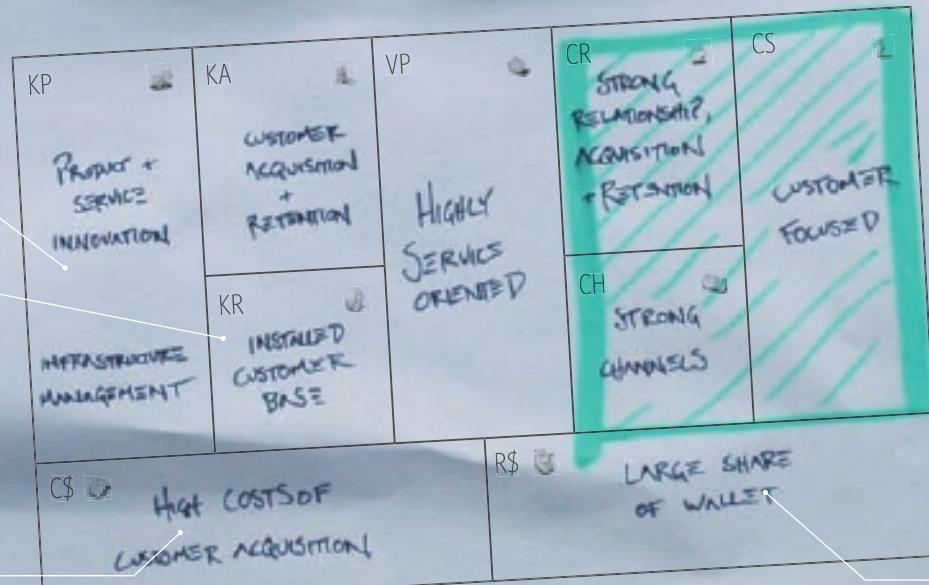 KP
PRODUCT +
SERVICE
INNOVATION
INFRASTRUCTURE
MANAGEMENT
KA
CUSTOMER
ACQUISITION
+
RETENTION
KR
INSTALLED
CUSTOMER
BASE
VP
HIGHLY
SERVICE
ORIENTED
CR
STRONG
RELATIONSHIP,
ACQUISITION
+ RETENTION
CH
STRONG
CHANNELS
CS
CUSTOMER
FOCUSED
C$
HIGH COSTS OF
CUSTOMER ACQUISITION
R$
LARGE SHARE
OF WALLET